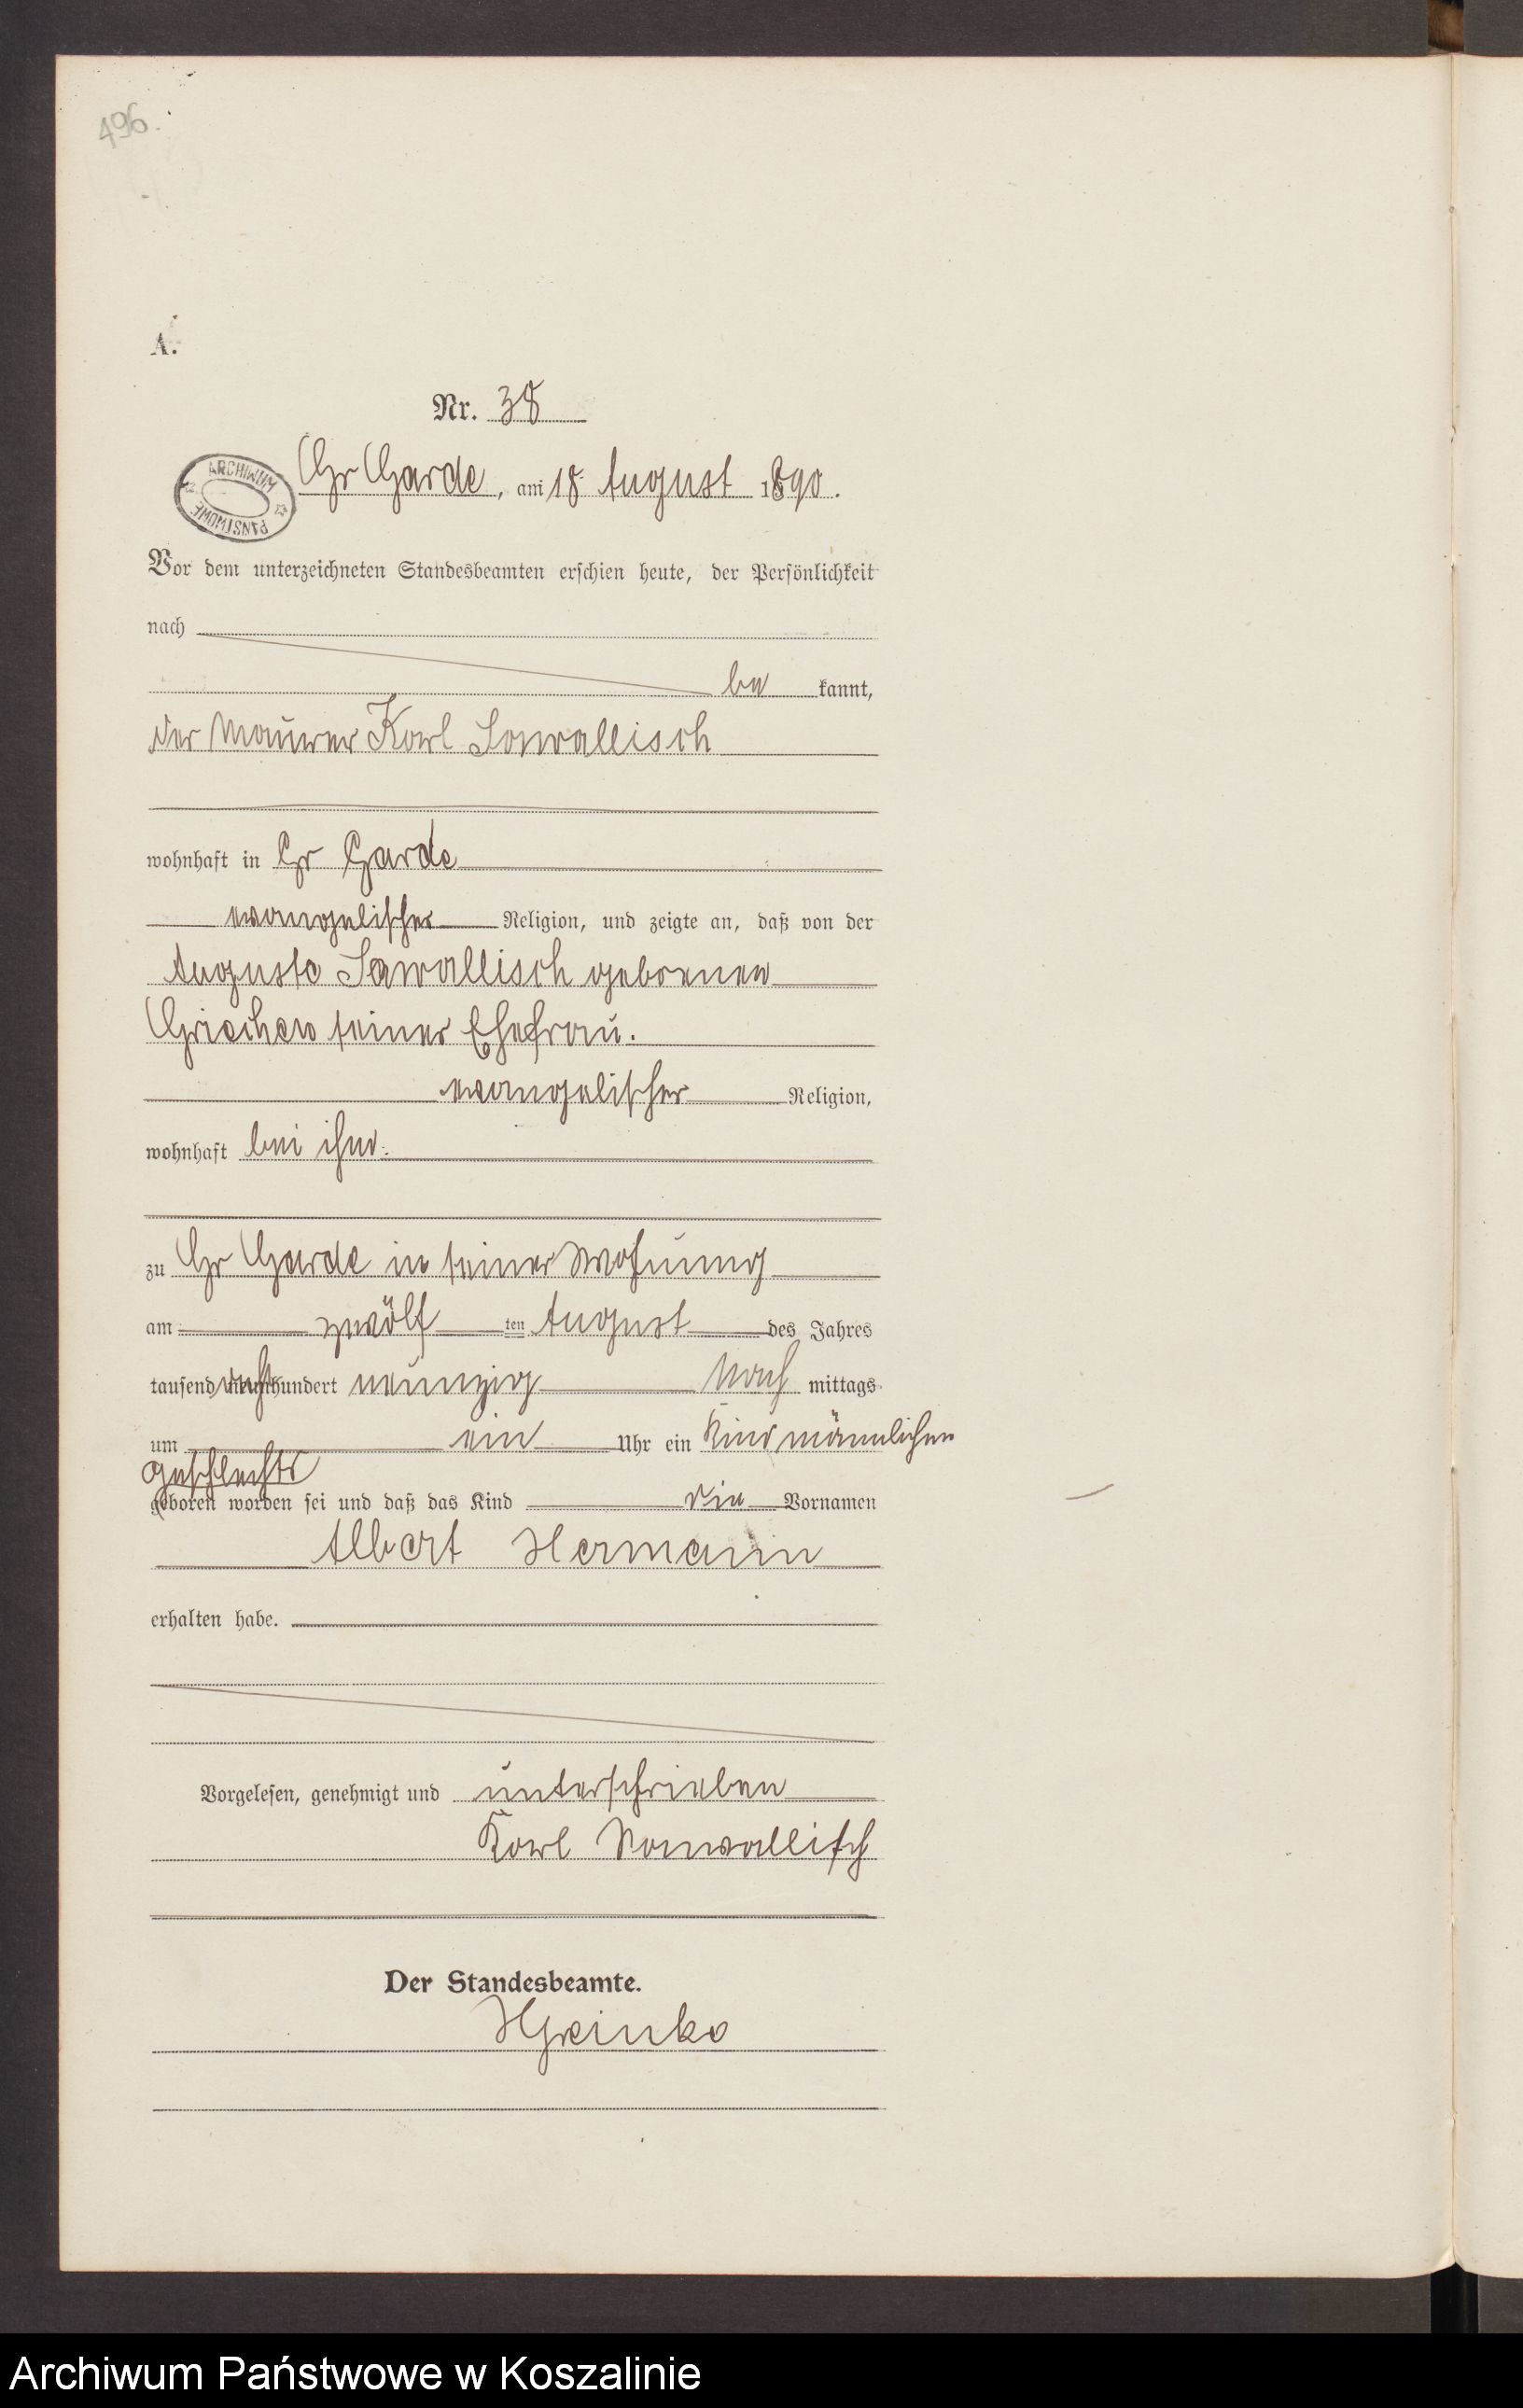 496.
A.
Nr. 38
ARCHIWUM
PAŃSTWOWE
Gr Garde, am 18. August 1890.
Vor dem unterzeichneten Standesbeamten erschien heute, der Persönlichkeit
nach
be kannt,
der Maurer Karl Sawallisch
wohnhaft in Gr Garde
evangelischer Religion, und zeigte an, daß von der
Auguste Sawallisch geborenen
seiner Ehefrau.
evangelischer Religion,
wohnhaft bei ihm.
zu Gr Garde in seiner Wohnung
am zwölf ten August des Jahres
tausend achthundert neunzig Nach mittags
um ein Uhr ein Kind männlichen
Geschlechts
geboren worden sei und daß das Kind die Vornamen
Albert Hermann
erhalten habe.
Vorgelesen, genehmigt und unterschrieben
Karl Sawallisch
Der Standesbeamte.
Archiwum Państwowe w Koszalinie